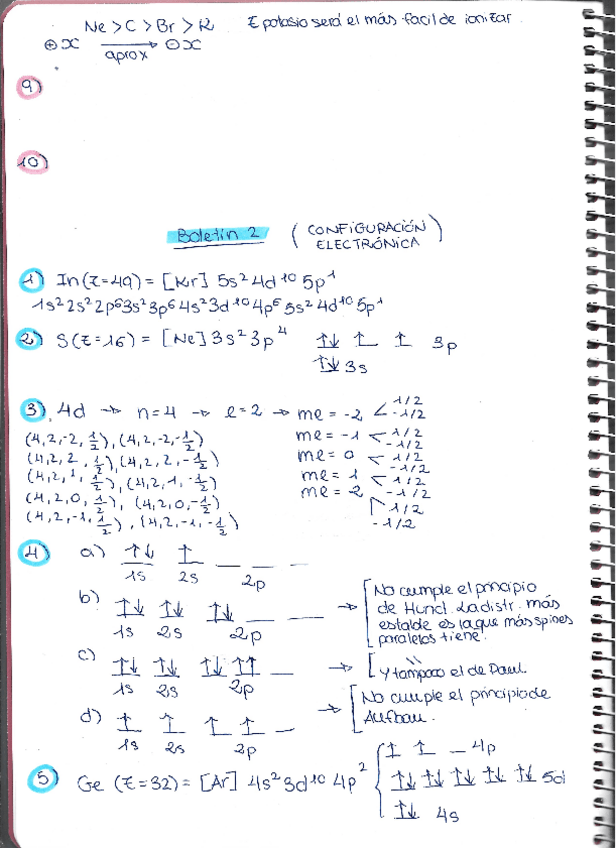 Ne > C > Br > K   E potasio será el más fácil de ionizar.
⊕x → ⊖x
aprox
9)
10)
Boletín 2 (CONFIGURACIÓN ELECTRÓNICA)
1) In (Z=49) = [Kr] 5s² 4d¹⁰ 5p¹
1s² 2s² 2p⁶ 3s² 3p⁶ 4s² 3d¹⁰ 4p⁶ 5s² 4d¹⁰ 5p¹
2) S (Z=16) = [Ne] 3s² 3p⁴   ↑↓ ↑ ↑ 3p
↑↓ 3s
3) 4d → n=4 → l=2 → me = -2 < 1/2 -1/2
(4,2,-2,1/2), (4,2,-2,-1/2)   me = -1 < 1/2 -1/2
(4,2,2,1/2), (4,2,2,-1/2)   me = 0 < 1/2 -1/2
(4,2,1,1/2), (4,2,1,-1/2)   me = 1 < 1/2 -1/2
(4,2,0,1/2), (4,2,0,-1/2)   me = 2 1/2 -1/2
(4,2,-1,1/2), (4,2,-1,-1/2)
4) a) ↑↓ ↑ _ _ _
1s 2s 2p
b) ↑↓ ↑↓ ↑↓ _ _ → [No cumple el principio
de Hund. La distr. más
estable es la que más spines
paralelos tiene.
1s 2s 2p
c) ↑↓ ↑↓ ↑↓ ↑↑ _ → [ " y tampoco el de Pauli.
1s 2s 2p
d) ↑ ↑ ↑ ↑ _ → [No cumple el principio de
Aufbau.
1s 2s 2p
5) Ge (Z=32) = [Ar] 4s² 3d¹⁰ 4p² { ↑ ↑ _ 4p
↑↓ ↑↓ ↑↓ ↑↓ ↑↓ 5d
↑↓ 4s